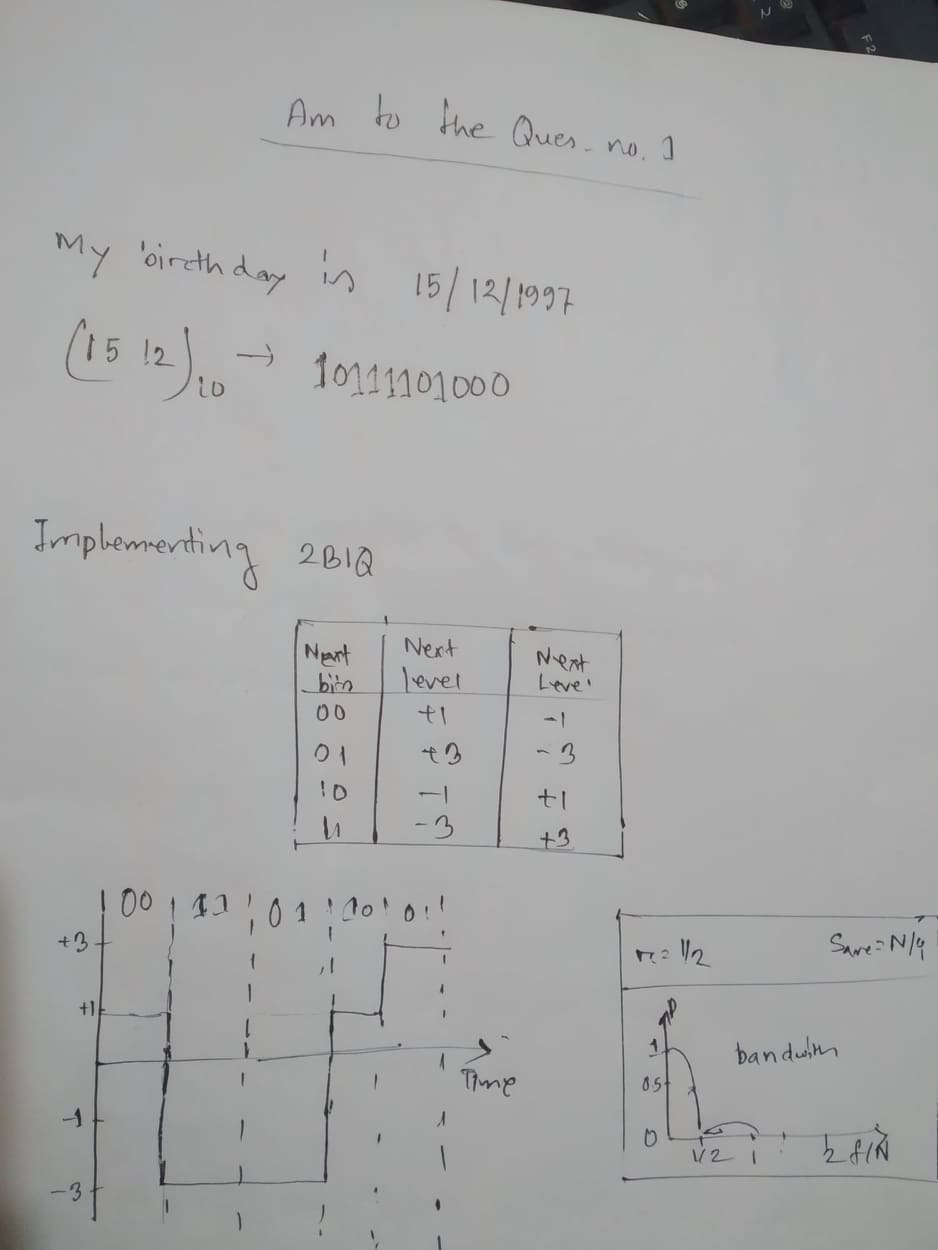 Am to the Ques. no. 1
My birthday is 15/12/1997
(15 12)10 → 10111101000
Implementing 2B1Q
Next bits Next level Next Level
00 +1 -1
01 +3 -3
10 -1 +1
11 -3 +3
00 11 01 10 01
+3
+1
-1
-3
Time
r = 1/2 Save = N/4
P
1
0.5
0
bandwith
1/2 1 2 f/N